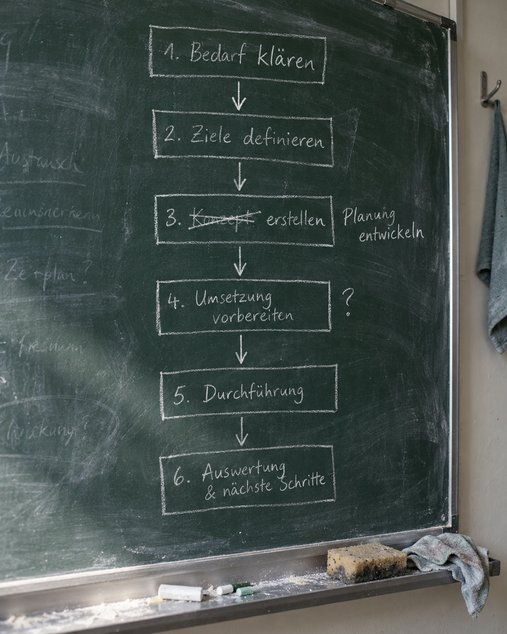 1. Bedarf klären
2. Ziele definieren
3. Konzept erstellen
Planung
entwickeln
4. Umsetzung
vorbereiten
?
5. Durchführung
6. Auswertung
& nächste Schritte
Austausch